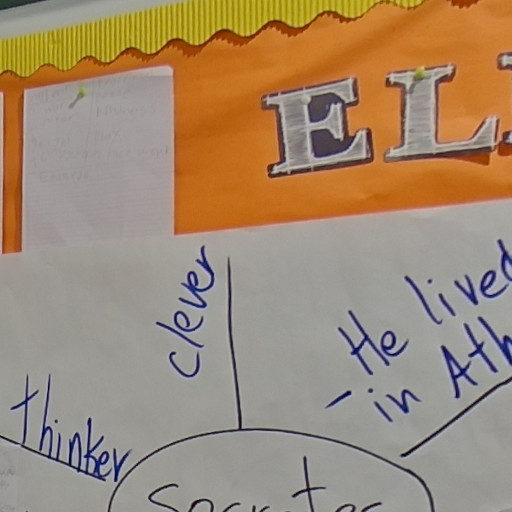 EL
clever
He lived
- in Ath
thinker
Socrates